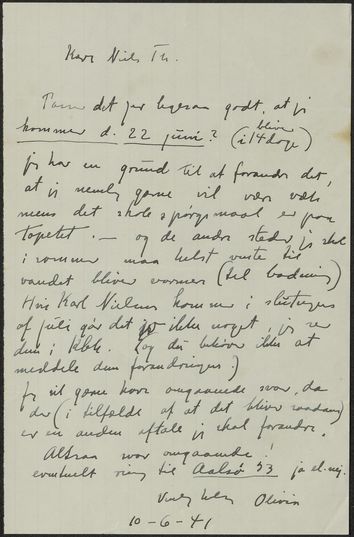 Kære Niels Th.
Passer det jer ligesaa godt, at jeg
kommer d. 22 juni? (bliver
i 14 dage)
jeg har en grund til at forandre det,
at jeg nemlig gerne vil være væk
mens det skole spørgsmaal er paa
Tapetet. — og de andre steder jeg skal
i sommer maa helst vente til
vandet bliver varmere (til badning)
Hvis Karl Nielsen kommer i slutningen
af juli gør det jo ikke noget, jeg ser
dem i Kbh. (og du behøver ikke at
meddele dem forandringen.)
Jeg vil gerne have omgaaende svar, da
der (i tilfælde af at det bliver saadan)
er en anden aftale jeg skal forandre.
Altsaa svar omgaaende!
eventuelt ring til Aalsø 53 ja el. nej.
Venlig hilsen Olivia
10-6-41